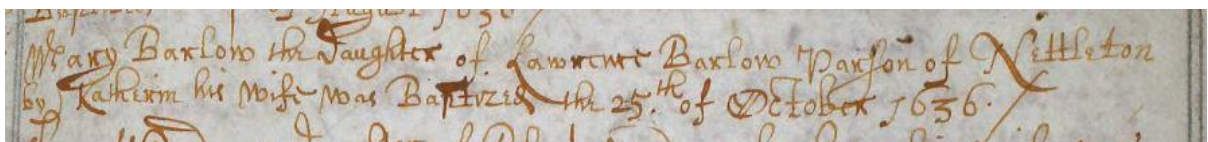 Baptized of August 1636
Mary Barlow the Daughter of Lawrence Barlow Parson of Nettleton
by Katherin his wife was Baptized the 25.th of October 1636.